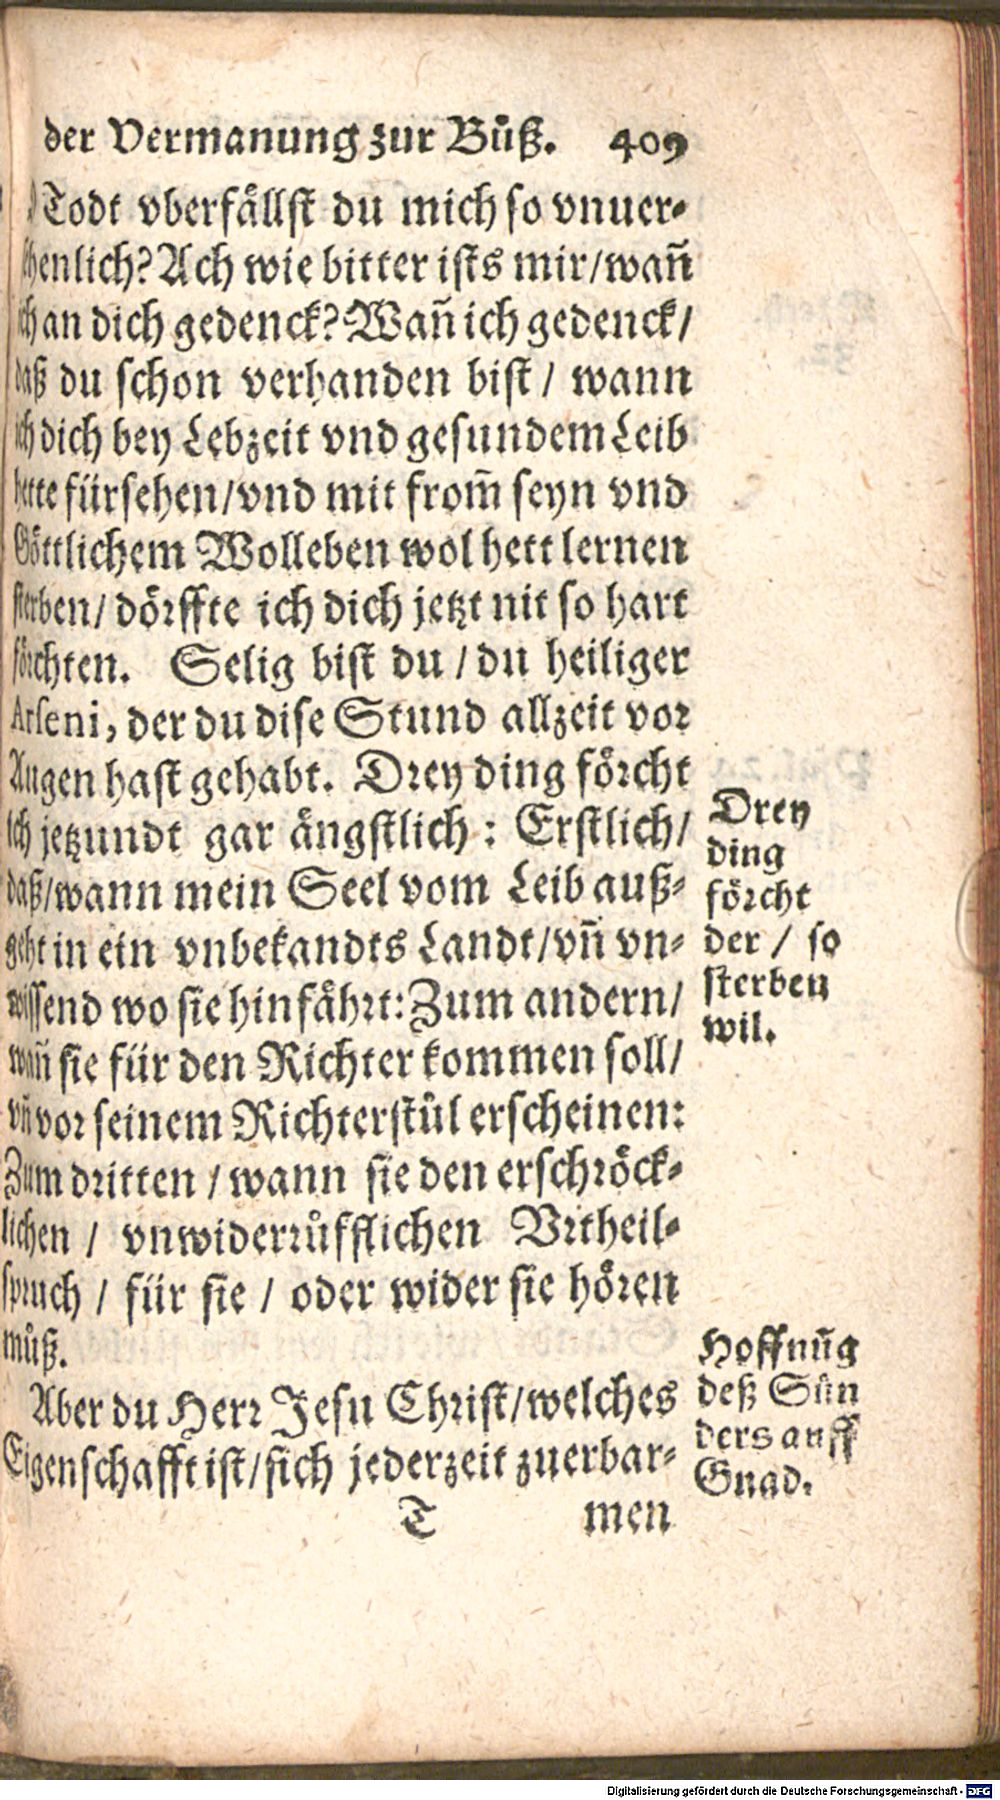 der Vermanung zur Bůß. 409
Todt vberfällst du mich so vnuer-
sehenlich? Ach wie bitter ists mir/wañ
ich an dich gedenck? Wañ ich gedenck/
daß du schon verhanden bist/ wann
ich dich bey Lebzeit vnd gesundem Leib
hette fürsehen/vnd mit from̃ seyn vnd
Göttlichem Wolleben wol hett lernen
sterben/ dörffte ich dich jetzt nit so hart
förchten. Selig bist du / du heiliger
Arseni, der du dise Stund allzeit vor
Augen hast gehabt. Drey ding förcht
ich jetzundt gar ängstlich : Erstlich/
daß/wann mein Seel vom Leib auß-
geht in ein vnbekandts Landt/vñ vn-
wissend wo sie hinfährt: Zum andern/
wañ sie für den Richter kommen soll/
vñ vor seinem Richterstůl erscheinen:
Zum dritten / wann sie den erschröck-
lichen / vnwiderrůfflichen Vrtheil-
spruch / für sie / oder wider sie hören
můß.
Aber du Herr Jesu Christ/welches
Eigenschafft ist/sich jederzeit zuerbar-
T men
Drey
ding
förcht
der / so
sterben
wil.
Hoffnũg
deß Sün
ders auff
Gnad.
Digitalisierung gefördert durch die Deutsche Forschungsgemeinschaft - DFG